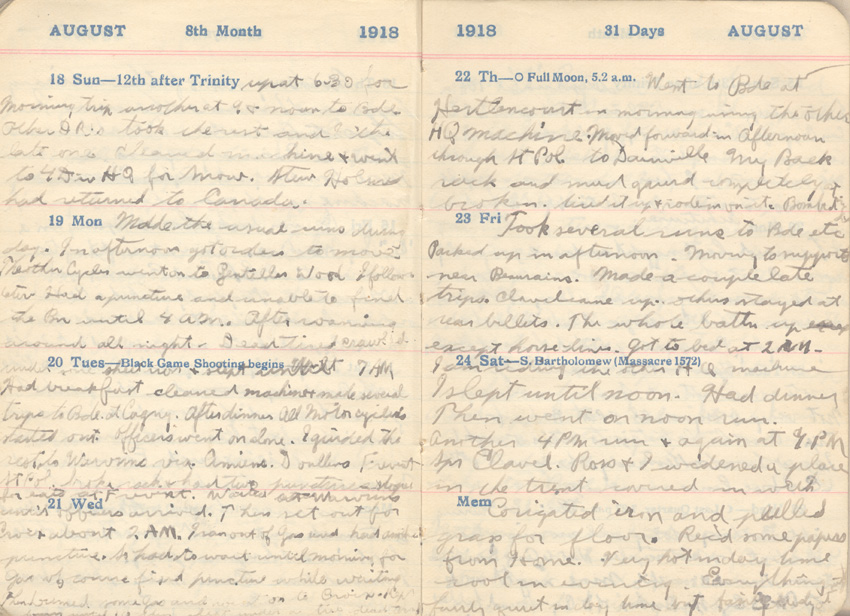 AUGUST 8th Month 1918
18 Sun—12th after Trinity up at 6-30 for
Morning trip another at 9 & noon to Bde
Other D.R.s took the rest and I the
late one cleaned machine & went
to 4 Div HQ for Mow. Stew Holmes
had returned to Canada.
19 Mon Made the usual runs during
day. In afternoon got orders to move
Motor Cycles went on to Gentelles Wood I follow
later Had a puncture and unable to find
the Bn until 4 AM. After roaming
around all night. I was tired crawl'd
20 Tues—Black Game Shooting begins 7 AM
under and slept until
Had breakfast cleaned machine & made several
trips to Bde. at Cagny. After dinner All Motorcyclists
started out. Officers went on alone. I guided the
rest to Wavrans via Amiens. Doullens Frevent
St Pol. Broke rack & had two punctures
at Frevent. Waited at Wavrans
21 Wed
until officers arrived. Then set out for
Croix about 2 AM. I ran out of Gas and had another
puncture. So had to wait until morning for
Gas of course fixed puncture while waiting
some gas and on to Croix
1918 31 Days AUGUST
22 Th—O Full Moon, 5.2 a.m. Went to Bde at
Hertencourt in morning using the other
HQ machine. Moved forward in Afternoon
through St Pol to Dainville My Back
rack and mud guard completely
broken. tied it up & rode in on it. Bombed
23 Fri Took several runs to Bde etc
Packed up in afternoon. Moving to support
near Beaurains. Made a couple late
trips. Clavel came up. others stayed at
rear billets. The whole battn up
except horse lines. Got to bed at 2 AM.
24 Sat—S. Bartholomew (Massacre 1572)
I am riding the other HQ machine
I slept until noon. Had dinner
Then went on noon run.
Another 4 PM run & again at 9 PM
for Clavel. Ross & I widened a place
in the trench covered in with
Mem Corigated iron and pulled
grass for floor. Rec'd some papers
from Home. Very hot in day time
cool in evening Everything
fairly quiet in day time but